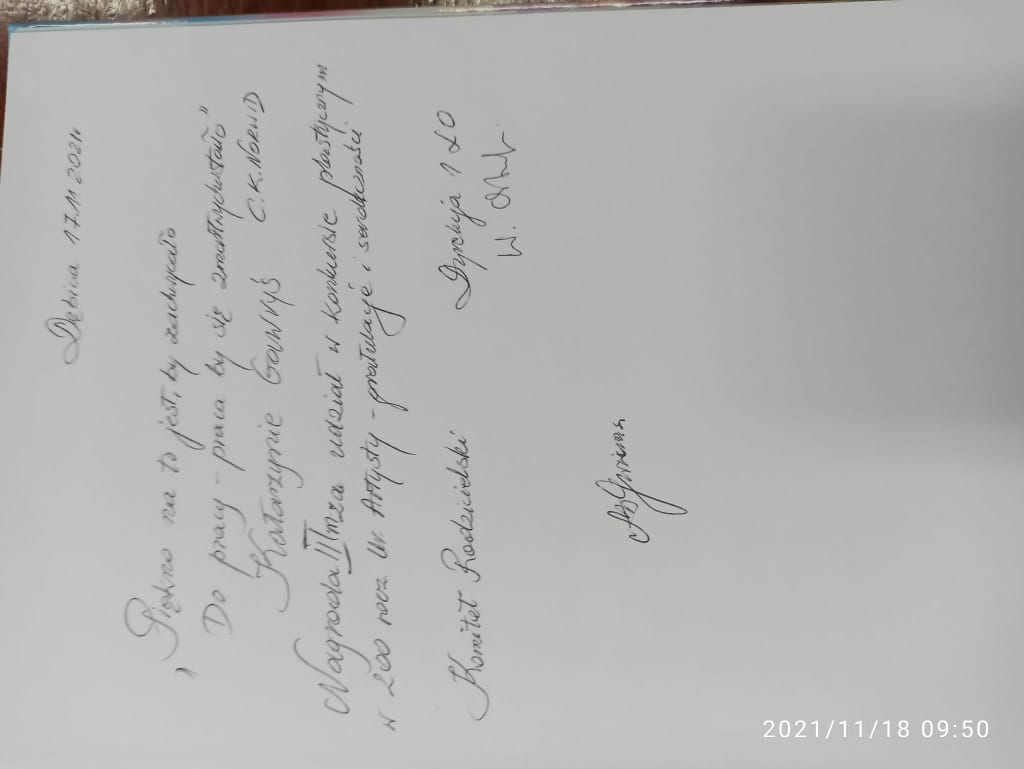 Dębica 17.11.2021r
„Piękno na to jest, by zachwycało
Do pracy - praca by się zmartwychwstało”
C.K. NORWID
Katarzynie Gawryś
Nagroda III m za udział w konkursie plastycznym
w 200 rocz ur. Artysty - gratulacje i serdeczności.
Komitet Rodzicielski Dyrekcja 1 LO
W.
2021/11/18 09:50